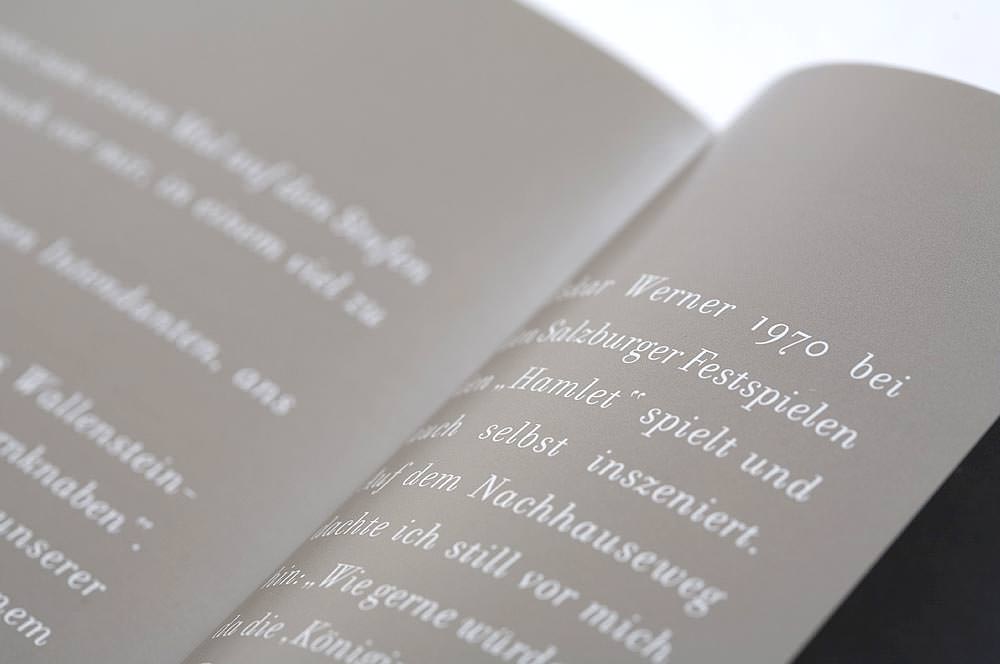 Mal auf den Stufen
vor mir, in einem viel zu
Intendanten, ans
Wallenstein-
unserer
Werner 1970 bei
Salzburger Festspielen
„Hamlet“ spielt und
selbst inszeniert.
Auf dem Nachhauseweg
dachte ich still vor mich
hin: „Wie gerne würde
da die ‚Königi